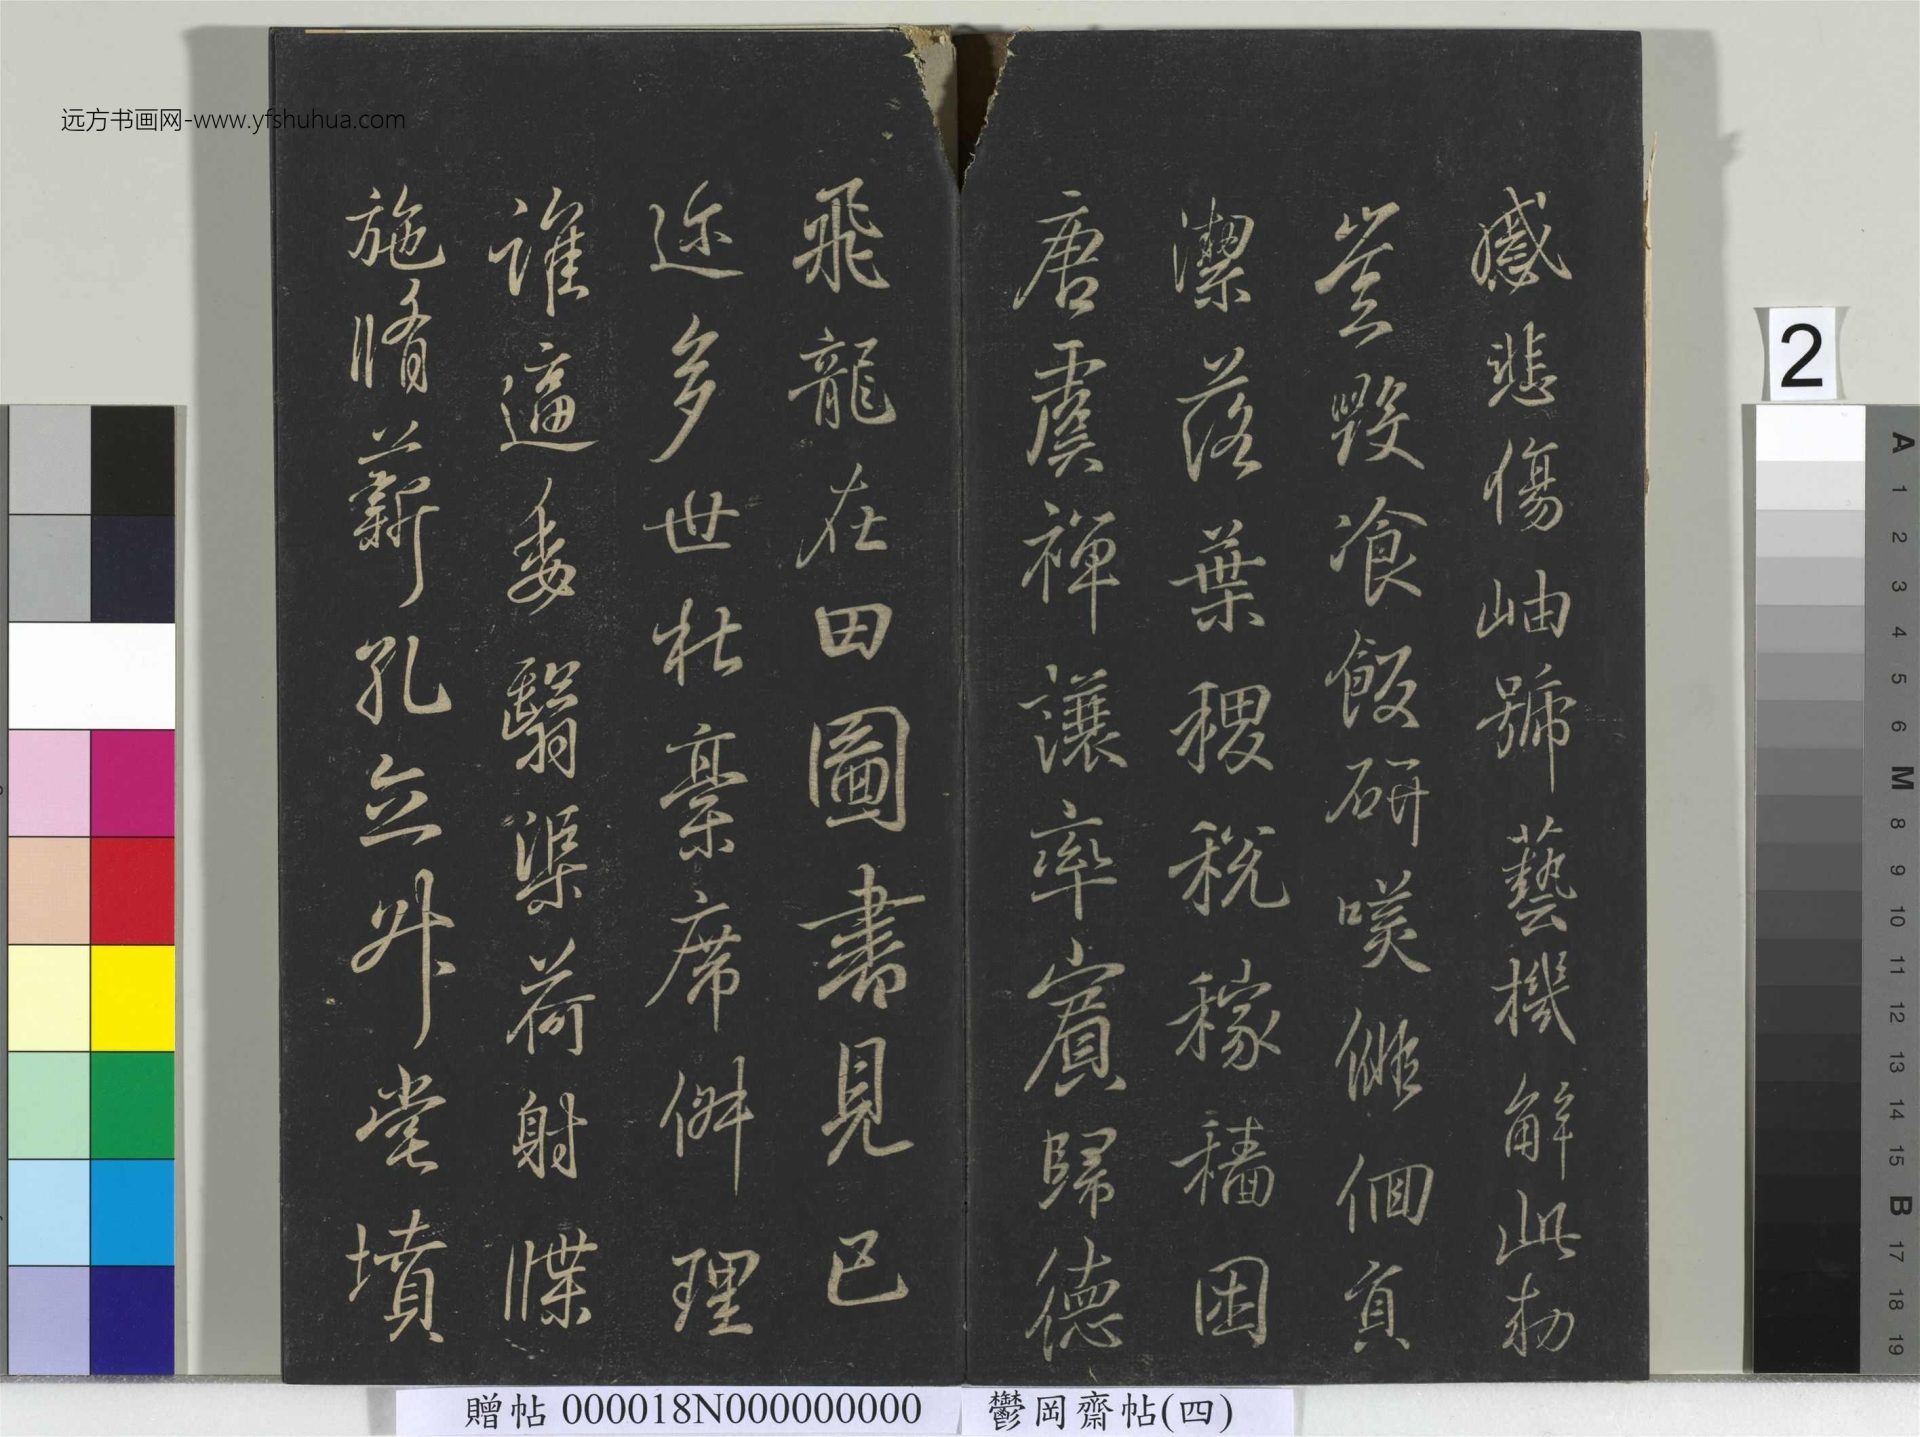 感悲傷岫號藝機解此勑
豈毀飡飯研
個負
潔落葉稷稅稼穡困
唐虞禪讓率賓歸德
飛龍在田圖書見已
迩多世
席
理
誰逼委翳渠荷射牒
施脩薪孔立外堂墳
远方书画网-www.yfshuhua.com
2
A
1
2
3
4
5
6
M
8
9
10
11
12
13
14
15
B
17
18
19
贈帖 000018N000000000
鬱岡齋帖(四)